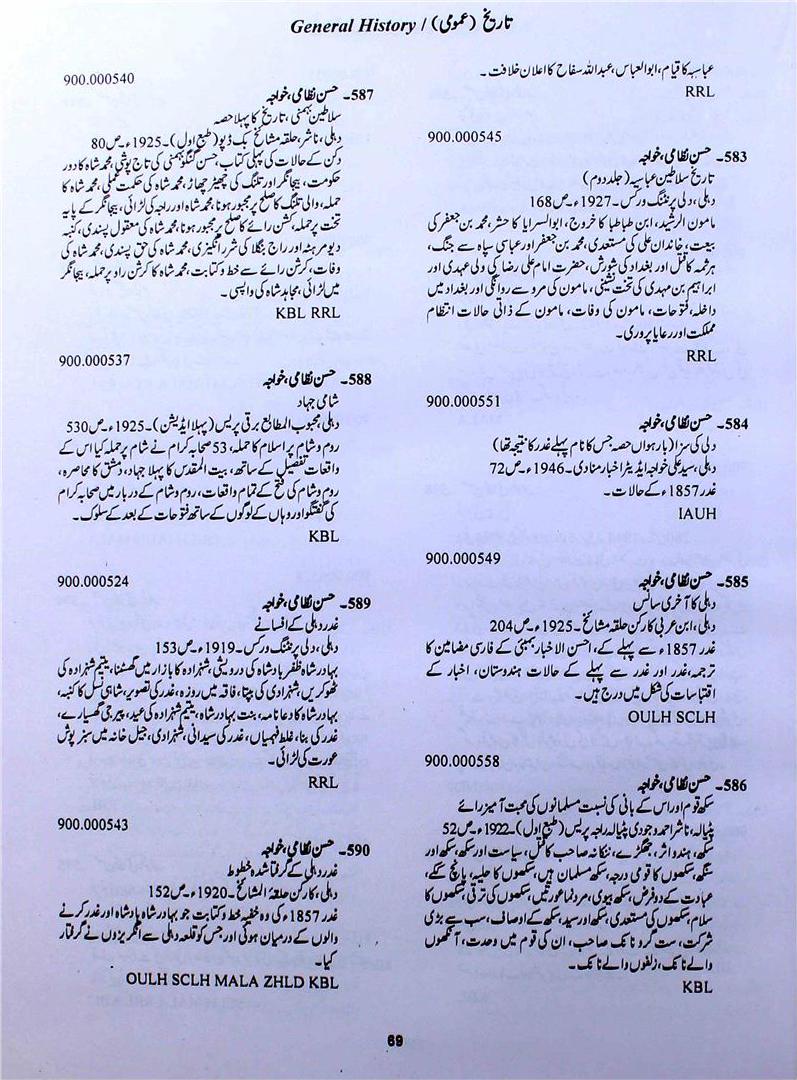 تاریخ (عمومی) / General History
عباسیہ کا قیام، ابوالعباس، عبداللہ سفاح کا اعلان خلافت۔
RRL
900.000545
583۔ حسن نظامی، خواجہ
تاریخ سلاطین عباسیہ (جلد دوم)
دہلی، دلی پرنٹنگ ورکس۔ 1927ء۔ ص 168
مامون الرشید، ابن طباطبا کا خروج، ابوالسرایا کا حشر، محمد بن جعفر کی
بیعت، خاندان علی کی مستعدی، محمد بن جعفر اور عباسی سپاہ سے جنگ،
ہرثمہ کا قتل اور بغداد کی شورش، حضرت امام علی رضا کی ولی عہدی اور
ابراہیم بن مہدی کی تخت نشینی، مامون کی مرو سے روانگی اور بغداد میں
داخلہ، فتوحات، مامون کی وفات، مامون کے ذاتی حالات انتظام
مملکت اور رعایا پروری۔
RRL
900.000551
584۔ حسن نظامی، خواجہ
دلی کی سزا (بارہواں حصہ جس کا نام پہلے غدر کا نتیجہ تھا)
دہلی، سید علی خواجہ ایڈیٹر اخبار منادی۔ 1946ء۔ ص 72
غدر 1857ء کے حالات۔
IAUH
900.000549
585۔ حسن نظامی، خواجہ
دہلی کا آخری سانس
دہلی، ابن عربی کارکن حلقہ مشائخ۔ 1925ء۔ ص 204
غدر 1857ء سے پہلے کے، احسن الاخبار بمبئی کے فارسی مضامین کا
ترجمہ، غدر اور غدر سے پہلے کے حالات ہندوستان، اخبار کے
اقتباسات کی شکل میں درج ہیں۔
OULH SCLH
900.000558
586۔ حسن نظامی، خواجہ
سکھ قوم اور اس کے بانی کی نسبت مسلمانوں کی محبت آمیز رائے
پٹیالہ، ناشر احمد وجودی پٹیالہ راجہ پریس (طبع اول)۔ 1922ء۔ ص 52
سکھ، ہندو اثر، جھگڑے، ننکانہ صاحب کا قتل، سیاست اور سکھ، سکھ اور
سنگھ، سکھوں کا قومی درجہ، سکھ مسلمان ہیں، سکھوں کا حلیہ، پانچ ککے،
عبادت کے دو فرض، سکھ بیوی، مرد نما عورتیں، سکھوں کی ترقی، سکھوں کا
سلام، سکھوں کی مستعدی، سکھ اور سید، سکھ کے اوصاف، سب سے بڑی
شرکت، ست گرو نانک صاحب، ان کی قوم میں وحدت، آنکھوں
والے نانک، زلفوں والے نانک۔
KBL
900.000540
587۔ حسن نظامی، خواجہ
سلاطین بہمنی، تاریخ کا پہلا حصہ
دہلی، ناشر، حلقہ مشائخ بک ڈپو (طبع اول)۔ 1925ء۔ ص 80
دکن کے حالات کی پہلی کتاب، حسن گنگو بہمنی کی تاج پوشی، محمد شاہ کا دور
حکومت، بیجانگر اور تلنگ کی چھیڑ چھاڑ، محمد شاہ کی حکمت عملی، محمد شاہ کا
حملہ، والی تلنگ کا صلح پر مجبور ہونا، محمد شاہ اور راجہ کی لڑائی، بیجانگر کے پایہ
تخت پر حملہ، کشن رائے کا صلح پر مجبور ہونا، محمد شاہ کی معقول پسندی،
دیو مرہٹہ اور راج بنگلا کی شر انگیزی، محمد شاہ کی حق پسندی، محمد شاہ کی
وفات، کرشن رائے سے خط و کتابت، محمد شاہ کا کرشن راو پر حملہ، بیجانگر
میں لڑائی، مجاہد شاہ کی واپسی۔
KBL RRL
900.000537
588۔ حسن نظامی، خواجہ
شامی جہاد
دہلی، محبوب المطابع برقی پریس (پہلا ایڈیشن)۔ 1925ء۔ ص 530
روم و شام پر اسلام کا حملہ، 53 صحابہ کرام نے شام پر حملہ کیا اس کے
واقعات تفصیل کے ساتھ، بیت المقدس کا پہلا جہاد، دمشق کا محاصرہ،
روم و شام کی فتح کے تمام واقعات، روم و شام کے دربار میں صحابہ کرام
کی گفتگو اور وہاں کے لوگوں کے ساتھ فتوحات کے بعد کے سلوک۔
KBL
900.000524
589۔ حسن نظامی، خواجہ
غدر دہلی کے افسانے
دہلی، دلی پرنٹنگ ورکس۔ 1919ء۔ ص 153
بہادر شاہ ظفر بادشاہ کی درویشی، شہزادہ کا بازار میں گھسٹنا، یتیم شہزادہ کی
ٹھوکریں، شہزادی کی بپتا، فاقہ میں روزہ، غدر کی تصویر، شاہی نسل کا کنبہ،
بہادر شاہ کا دعا نامہ، بنت بہادر شاہ، یتیم شہزادہ کی عید، پیر جی گھسیارے،
غدر کی بنا، غلط فہمیاں، غدر کی سیدانی، شہزادی، جیل خانہ میں سبز پوش
عورت کی لڑائی۔
RRL
900.000543
590۔ حسن نظامی، خواجہ
غدر دہلی کے گرفتار شدہ خطوط
دہلی، کارکن حلقۂ المشائخ۔ 1920ء۔ ص 152
غدر 1857ء کی وہ خفیہ خط و کتابت جو بہادر شاہ بادشاہ اور غدر کرنے
والوں کے درمیان ہوئی اور جس کو قلعہ دہلی سے انگریزوں نے گرفتار
کیا۔
OULH SCLH MALA ZHLD KBL
69